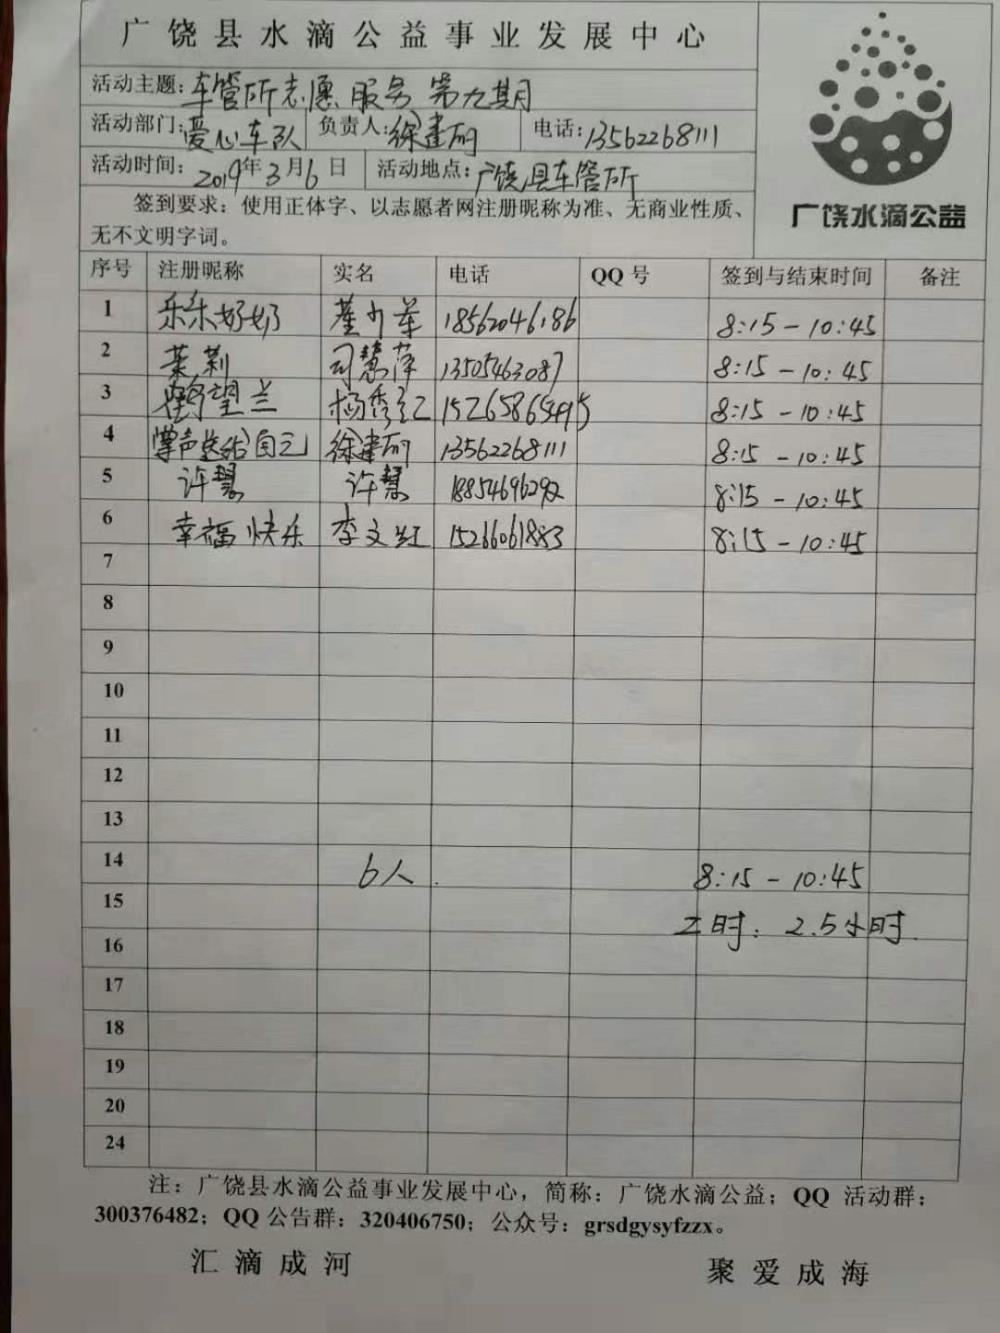 广饶县水滴公益事业发展中心
活动主题：车管所志愿服务 第九期
活动部门：爱心车队 负责人：徐建丽 电话：13562268111
活动时间：2019年3月6日 活动地点：广饶县车管所
签到要求：使用正体字、以志愿者网注册昵称为准、无商业性质、
无不文明字词。
广饶水滴公益
序号 注册昵称 实名 电话 QQ 号 签到与结束时间 备注
1 乐乐奶奶 18562046186 8:15-10:45
2 茉莉 司慧萍 13505463087 8:15-10:45
3 望兰 杨秀红 8:15-10:45
4 掌声送给自己 徐建丽 13562268111 8:15-10:45
5 许慧 许慧 18854696292 8:15-10:45
6 幸福快乐 李文红 15266061883 8:15-10:45
7
8
9
10
11
12
13
14 6人. 8:15-10:45
15 工时：2.5小时.
16
17
18
19
20
24
注：广饶县水滴公益事业发展中心，简称：广饶水滴公益；QQ 活动群：
300376482；QQ 公告群：320406750；公众号：grsdgysyfzzx。
汇滴成河 聚爱成海